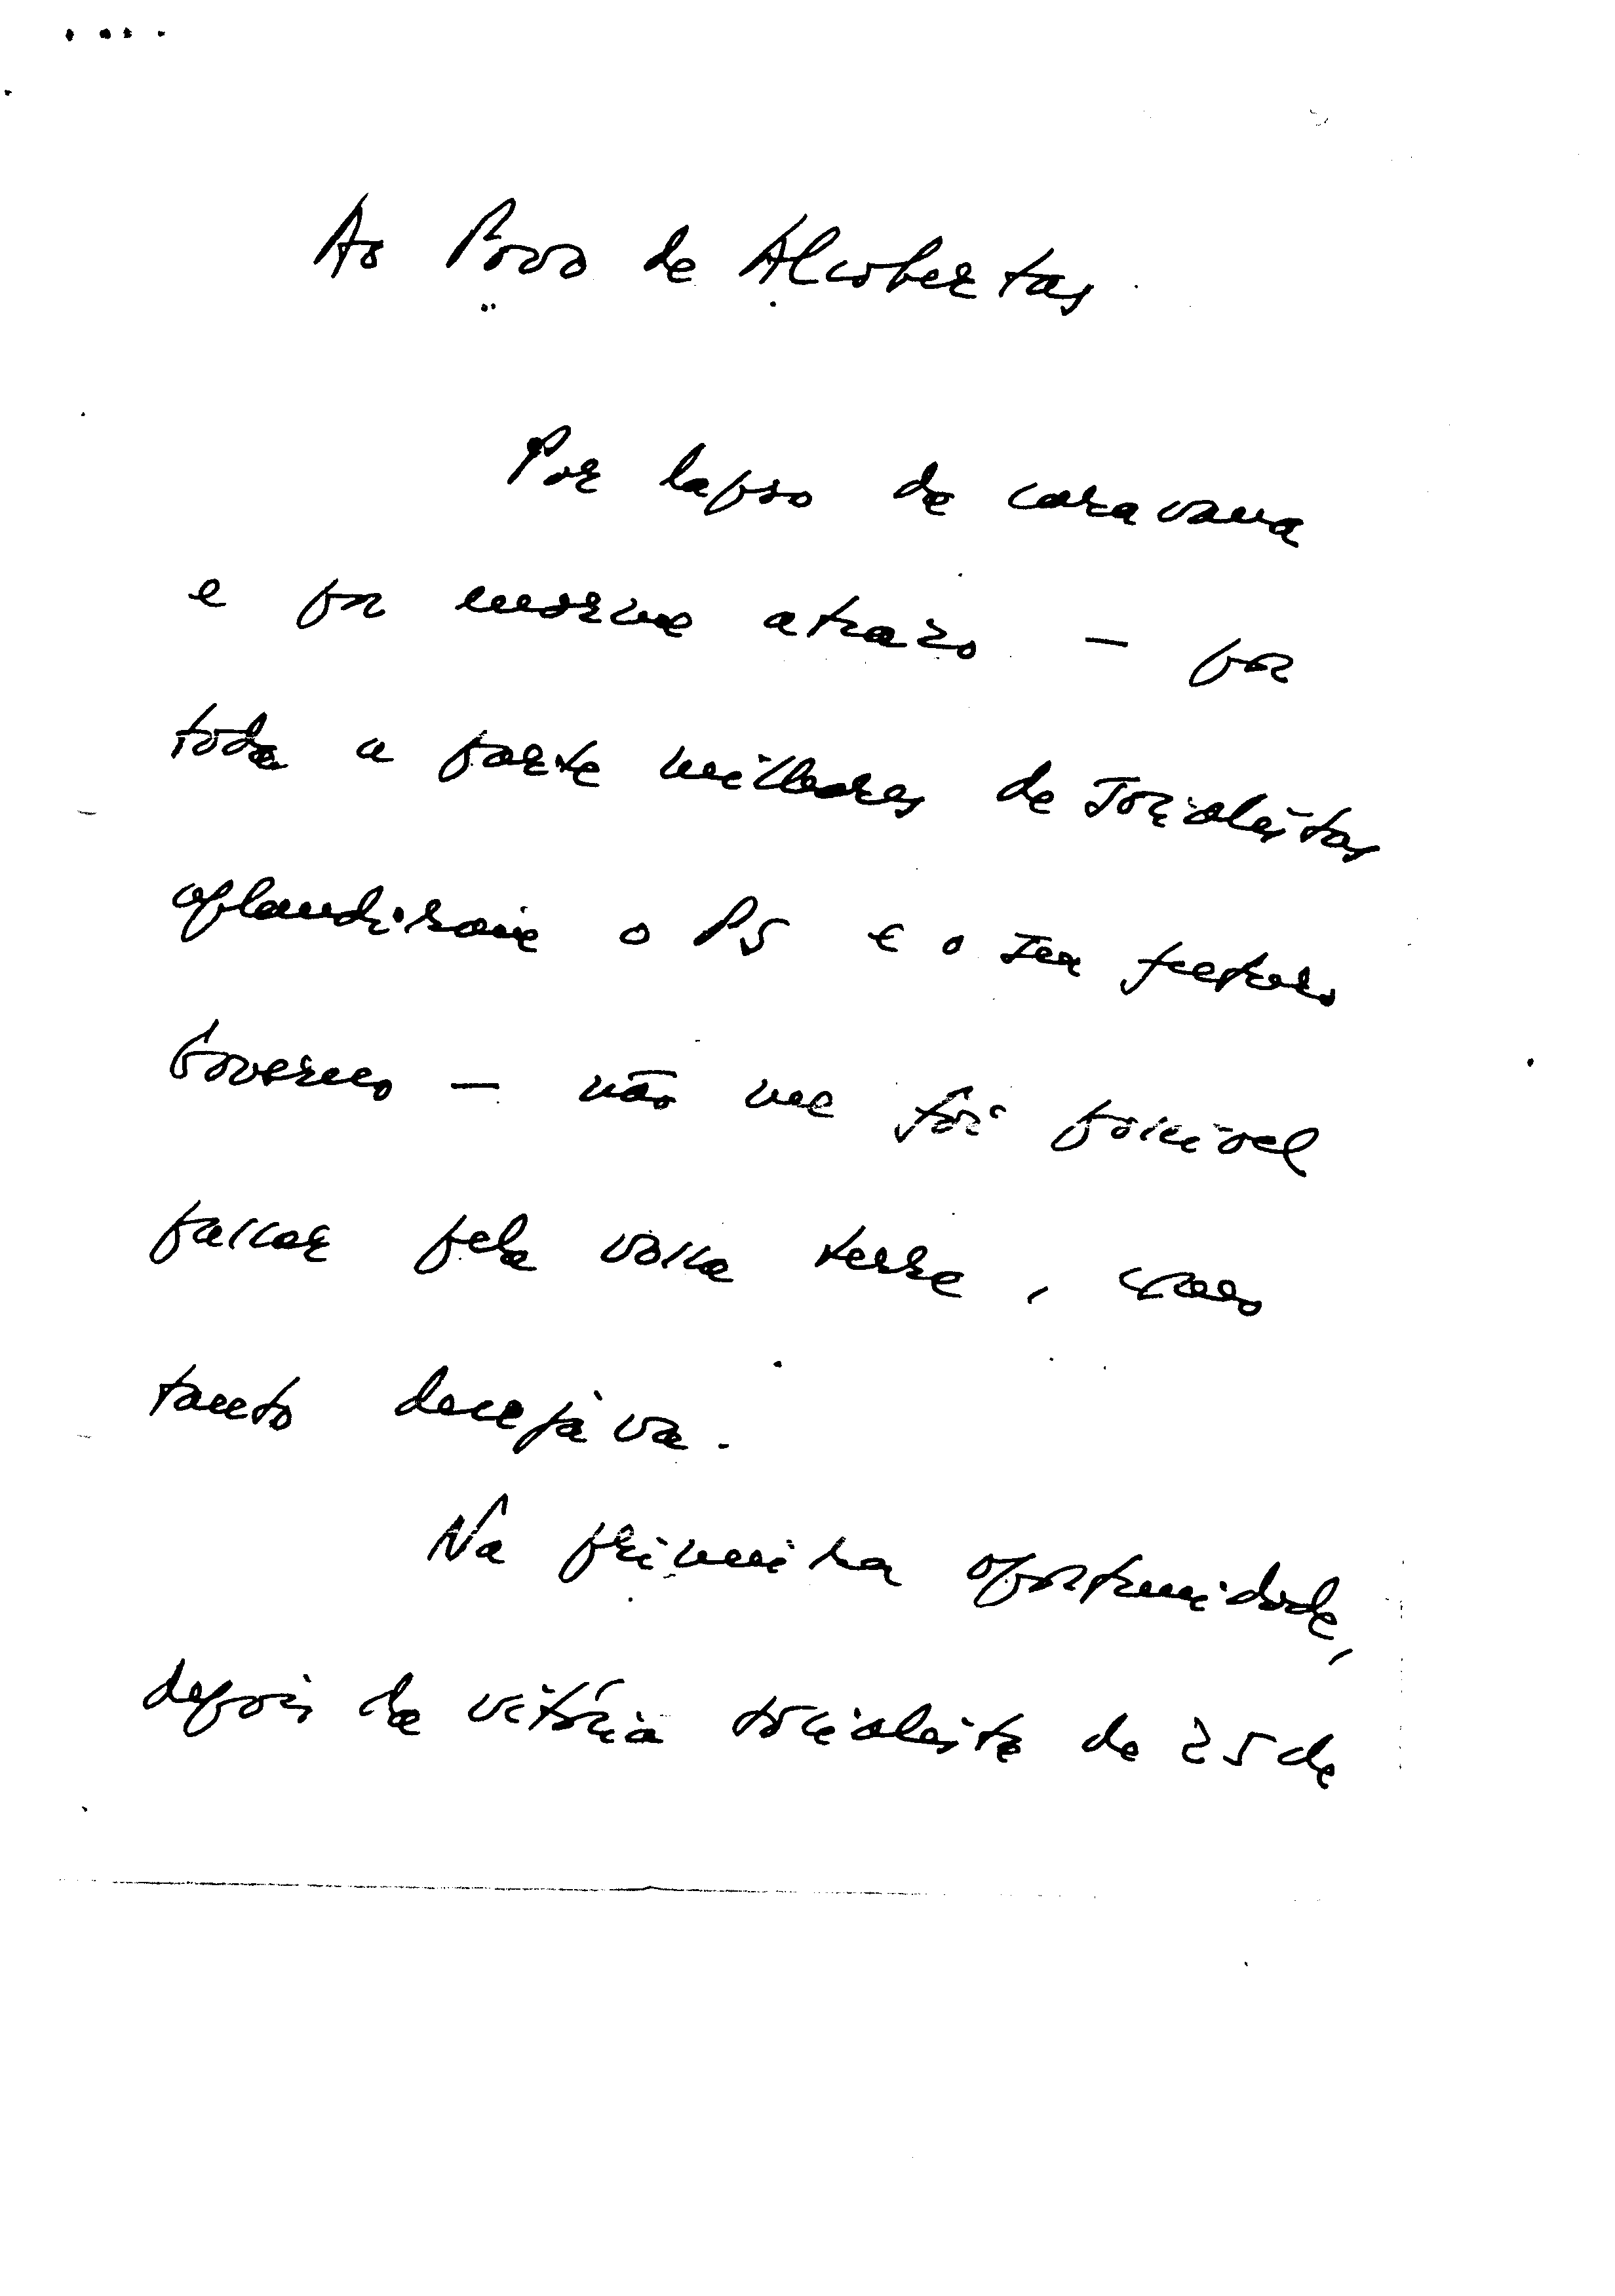 Ao Povo de Alcobertas
Por lapso de caravana
e por enorme atrazo — por
toda a parte milhares de Socialistas
aplaudiram o PS e o seu futuro
Governo — não me foi possivel
passar pela vossa terra, como
tanto desejáva.
Na primeira oportunidade,
depois da vitória socialista de 25 de